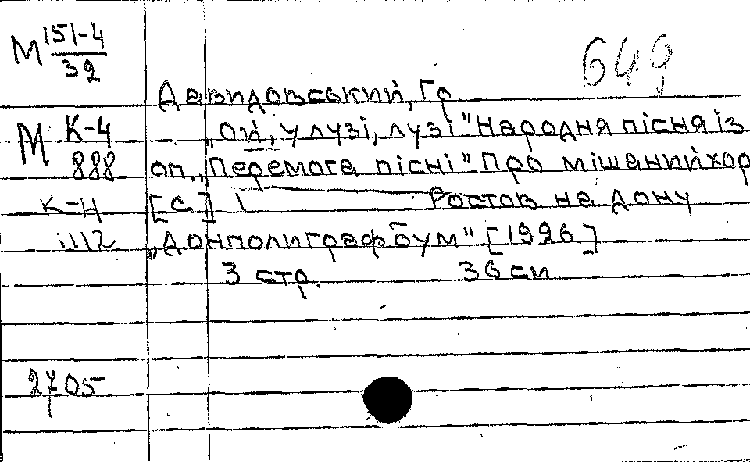 М 151-4
32
649
Давидовський, Гр
М К-4
888
„Ой, у лузі, лузі" Народня пісня із
оп. „Перемога пісні" Про мішаний хор
К-Н
[С.] Ростов на Дону
1112
„Донполиграфбум" [1926]
3 стр. 36 см
2705